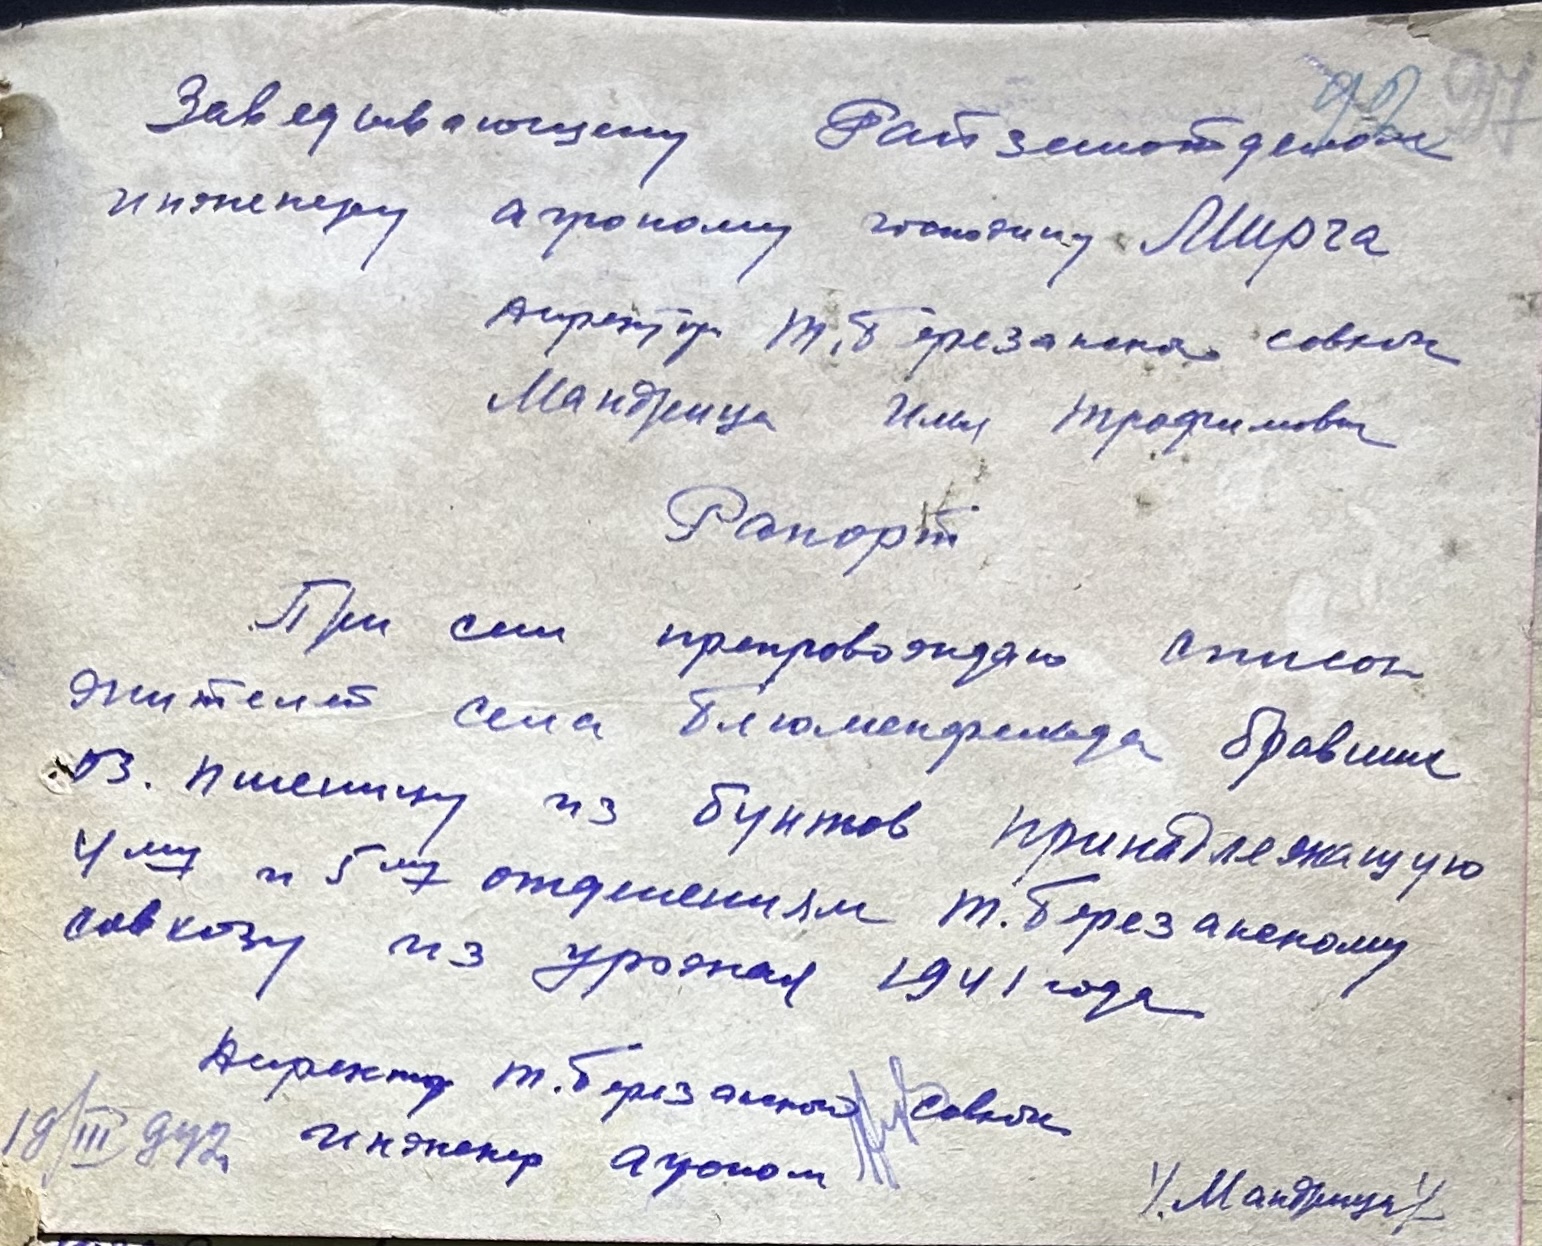 97
Заведывающему Райземотделом
инженеру агроному господину Мирча
Директор Т. Березанского совхоза
Мандрица Илья Трофимович
Рапорт
При сем препровождаю список
жителей села Блюменфельда бравших
оз. пшеницу из бунтов принадлежащую
4му и 5му отделениям Т. Березанскому
совхозу из урожая 1941 года
Директор Т. Березанского совхоза
19/III 942. инженер агроном
/. Мандрица /